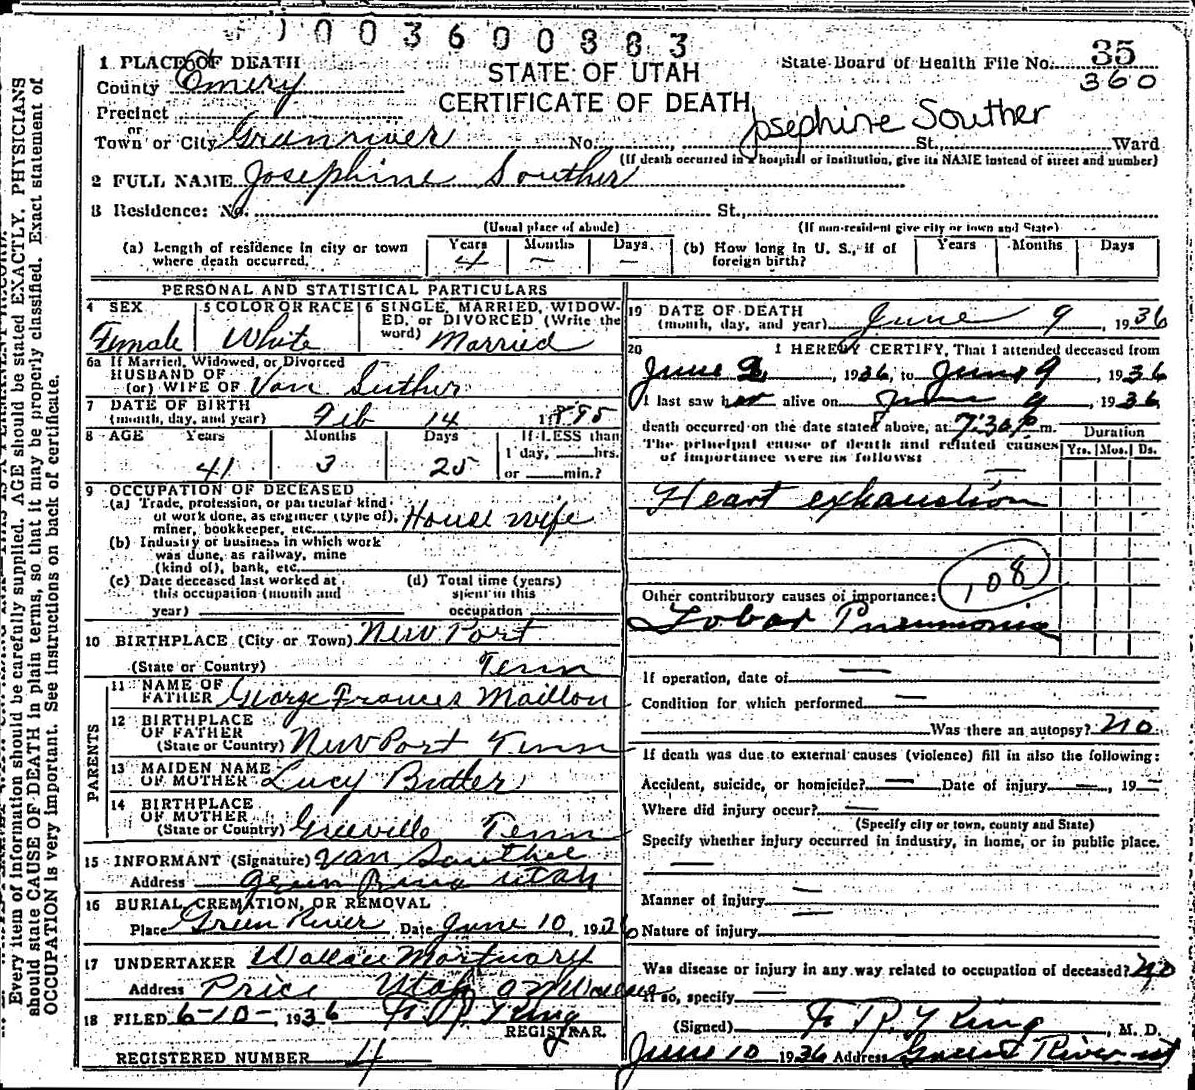 1003600883
1 PLACE OF DEATH
STATE OF UTAH
State Board of Health File No. 35
County Emery
360
CERTIFICATE OF DEATH
Precinct
Josephine Souther
or
Town or City Greenriver No. St. Ward
(If death occurred in a hospital or institution, give its NAME instead of street and number)
2 FULL NAME Josephine Souther
3 Residence: No. St.
(Usual place of abode) (If non-resident give city or town and State)
(a) Length of residence in city or town where death occurred. Years 4 Months – Days –
(b) How long in U. S., if of foreign birth? Years Months Days
PERSONAL AND STATISTICAL PARTICULARS
4 SEX Female
5 COLOR OR RACE White
6 SINGLE, MARRIED, WIDOWED, or DIVORCED (Write the word) Married
6a If Married, Widowed, or Divorced
HUSBAND OF
(or) WIFE OF Van Suther
7 DATE OF BIRTH
(month, day, and year) Feb 14 1895
8 AGE Years 41 Months 3 Days 25 If LESS than 1 day, hrs. or min.?
9 OCCUPATION OF DECEASED
(a) Trade, profession, or particular kind of work done, as engineer (type of), miner, bookkeeper, etc. House wife
(b) Industry or business in which work was done, as railway, mine (kind of), bank, etc.
(c) Date deceased last worked at this occupation (month and year)
(d) Total time (years) spent in this occupation
10 BIRTHPLACE (City or Town) New Port
(State or Country) Tenn
PARENTS
11 NAME OF FATHER George Frances Maillon
12 BIRTHPLACE OF FATHER
(State or Country) New Port Tenn
13 MAIDEN NAME OF MOTHER Lucy Butler
14 BIRTHPLACE OF MOTHER
(State or Country) Greeville Tenn
15 INFORMANT (Signature) Van Souther
Address Green River Utah
16 BURIAL, CREMATION, OR REMOVAL
Place Green River Date June 10, 1936
17 UNDERTAKER Wallace Mortuary
Address Price Utah
18 FILED 6-10-, 1936 F R King
REGISTRAR.
REGISTERED NUMBER 4
19 DATE OF DEATH
(month, day, and year) June 9, 1936
20 I HEREBY CERTIFY, That I attended deceased from
June 9, 1936, to June 9, 1936
I last saw her alive on June 9, 1936
death occurred on the date stated above, at 7:30 P. m.
The principal cause of death and related causes of importance were as follows:
Duration
Yrs. Mos. Ds.
Heart exhaustion
108
Other contributory causes of importance:
Lobar Pneumonia
If operation, date of —
Condition for which performed —
Was there an autopsy? no
If death was due to external causes (violence) fill in also the following:
Accident, suicide, or homicide? — Date of injury —, 19 —
Where did injury occur? —
(Specify city or town, county and State)
Specify whether injury occurred in industry, in home, or in public place.
—
Manner of injury —
Nature of injury —
Was disease or injury in any way related to occupation of deceased? no
If so, specify —
(Signed) F R King, M. D.
June 10 1936 Address Green River ut
Every item of information should be carefully supplied. AGE should be stated EXACTLY. PHYSICIANS
should state CAUSE OF DEATH in plain terms, so that it may be properly classified. Exact statement of
OCCUPATION is very important. See instructions on back of certificate.